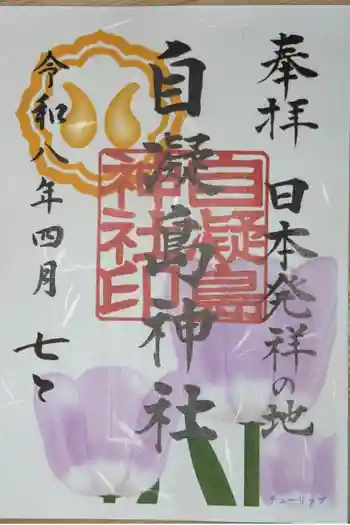 奉拝
日本発祥の地
自凝島神社
自凝島
神社印
令和八年四月
七日
チューリップ